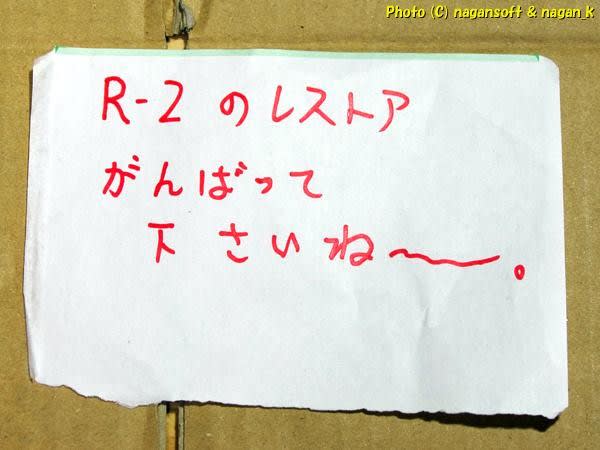 Photo (C) nagansoft & nagan_k
R-2 のレストア
がんばって
下さいね〜。